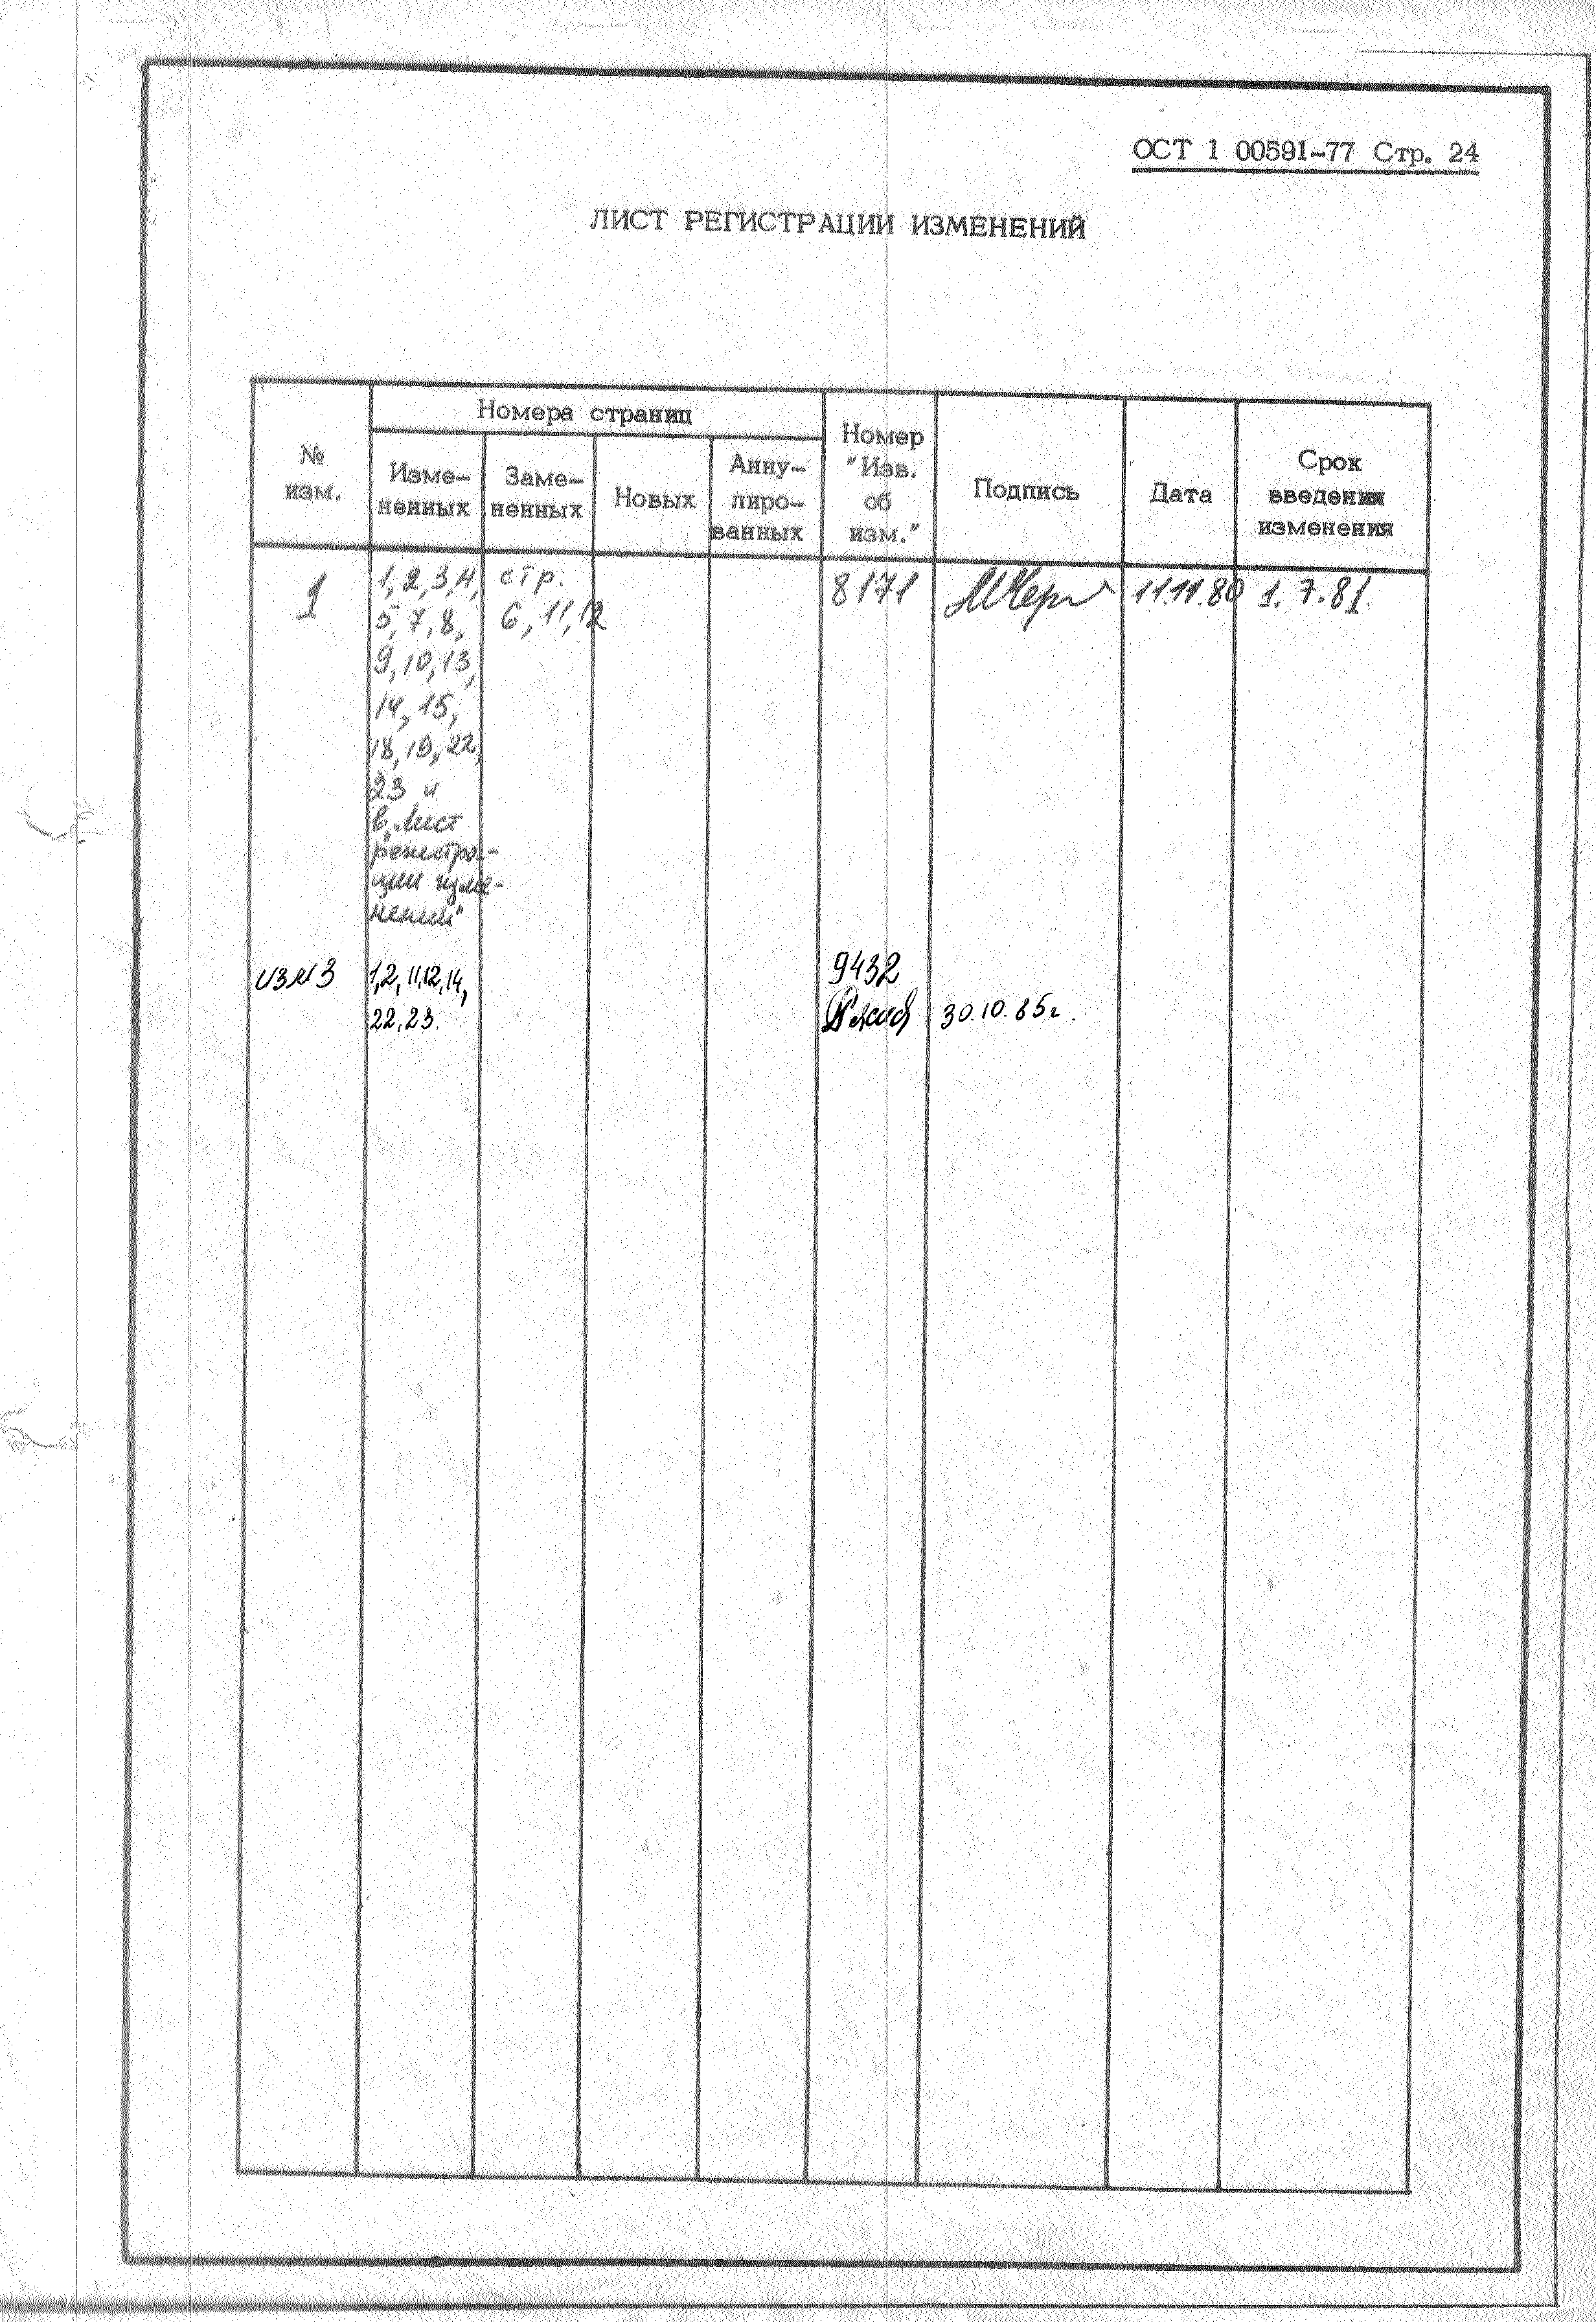 ОСТ 1 00591-77 Стр. 24
ЛИСТ РЕГИСТРАЦИИ ИЗМЕНЕНИЙ
№
изм.
Номера страниц
Изме-
ненных
Заме-
ненных
Новых
Анну-
лиро-
ванных
Номер
"Изв.
об
изм."
Подпись
Дата
Срок
введения
изменения
1
1,2,3,4,
5,7,8,
9,10,13,
14,15,
18,19,22,
23 и
в „Лист
регистра-
ции изме-
нений"
стр.
6,11,12
8171
11.11.80
1.7.81.
изм 3
1,2,11,12,14,
22,23.
9432
30.10.85г.